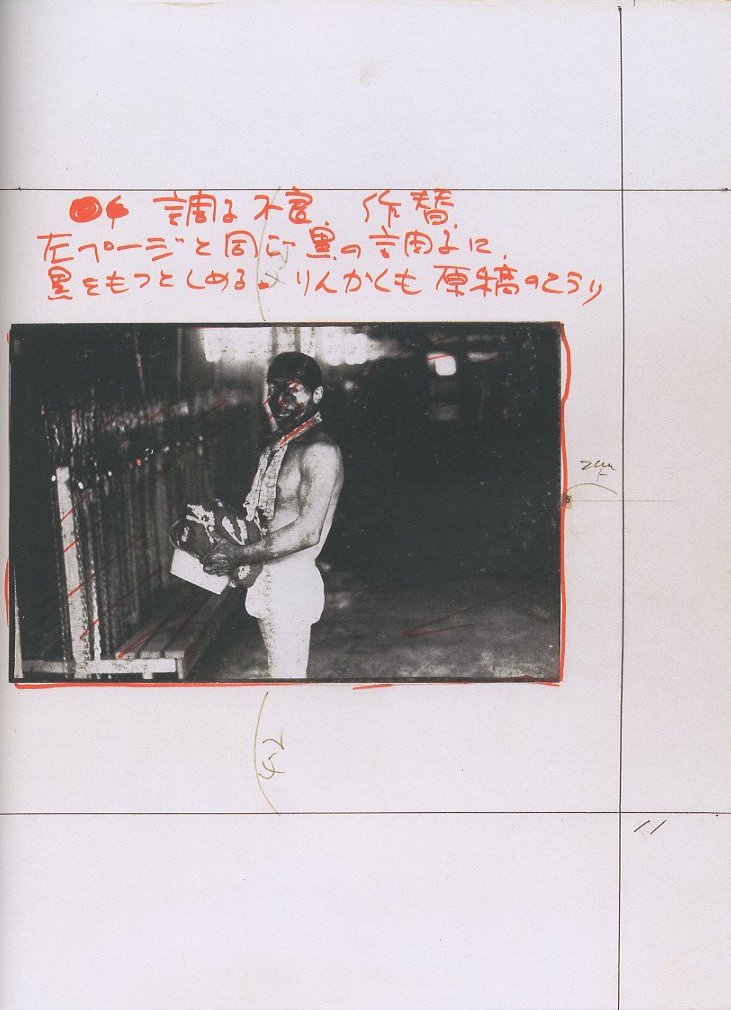 4 調子不良. 作替.
左ページと同じ黒の調子に.
黒をもっとしめる。りんかくも原稿のとうり
2cm
11